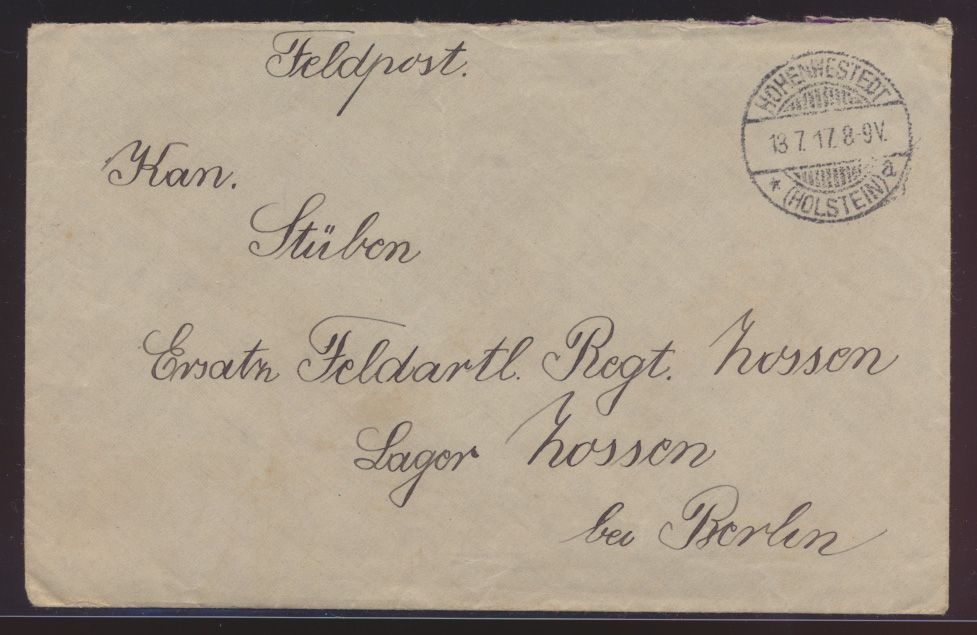 Feldpost.
HOHENWESTEDT
13 7. 17. 8-9V.
* (HOLSTEIN) a
Kan.
Stüben
Ersatz Feldartl. Regt. Zossen
Lager Zossen
bei Berlin